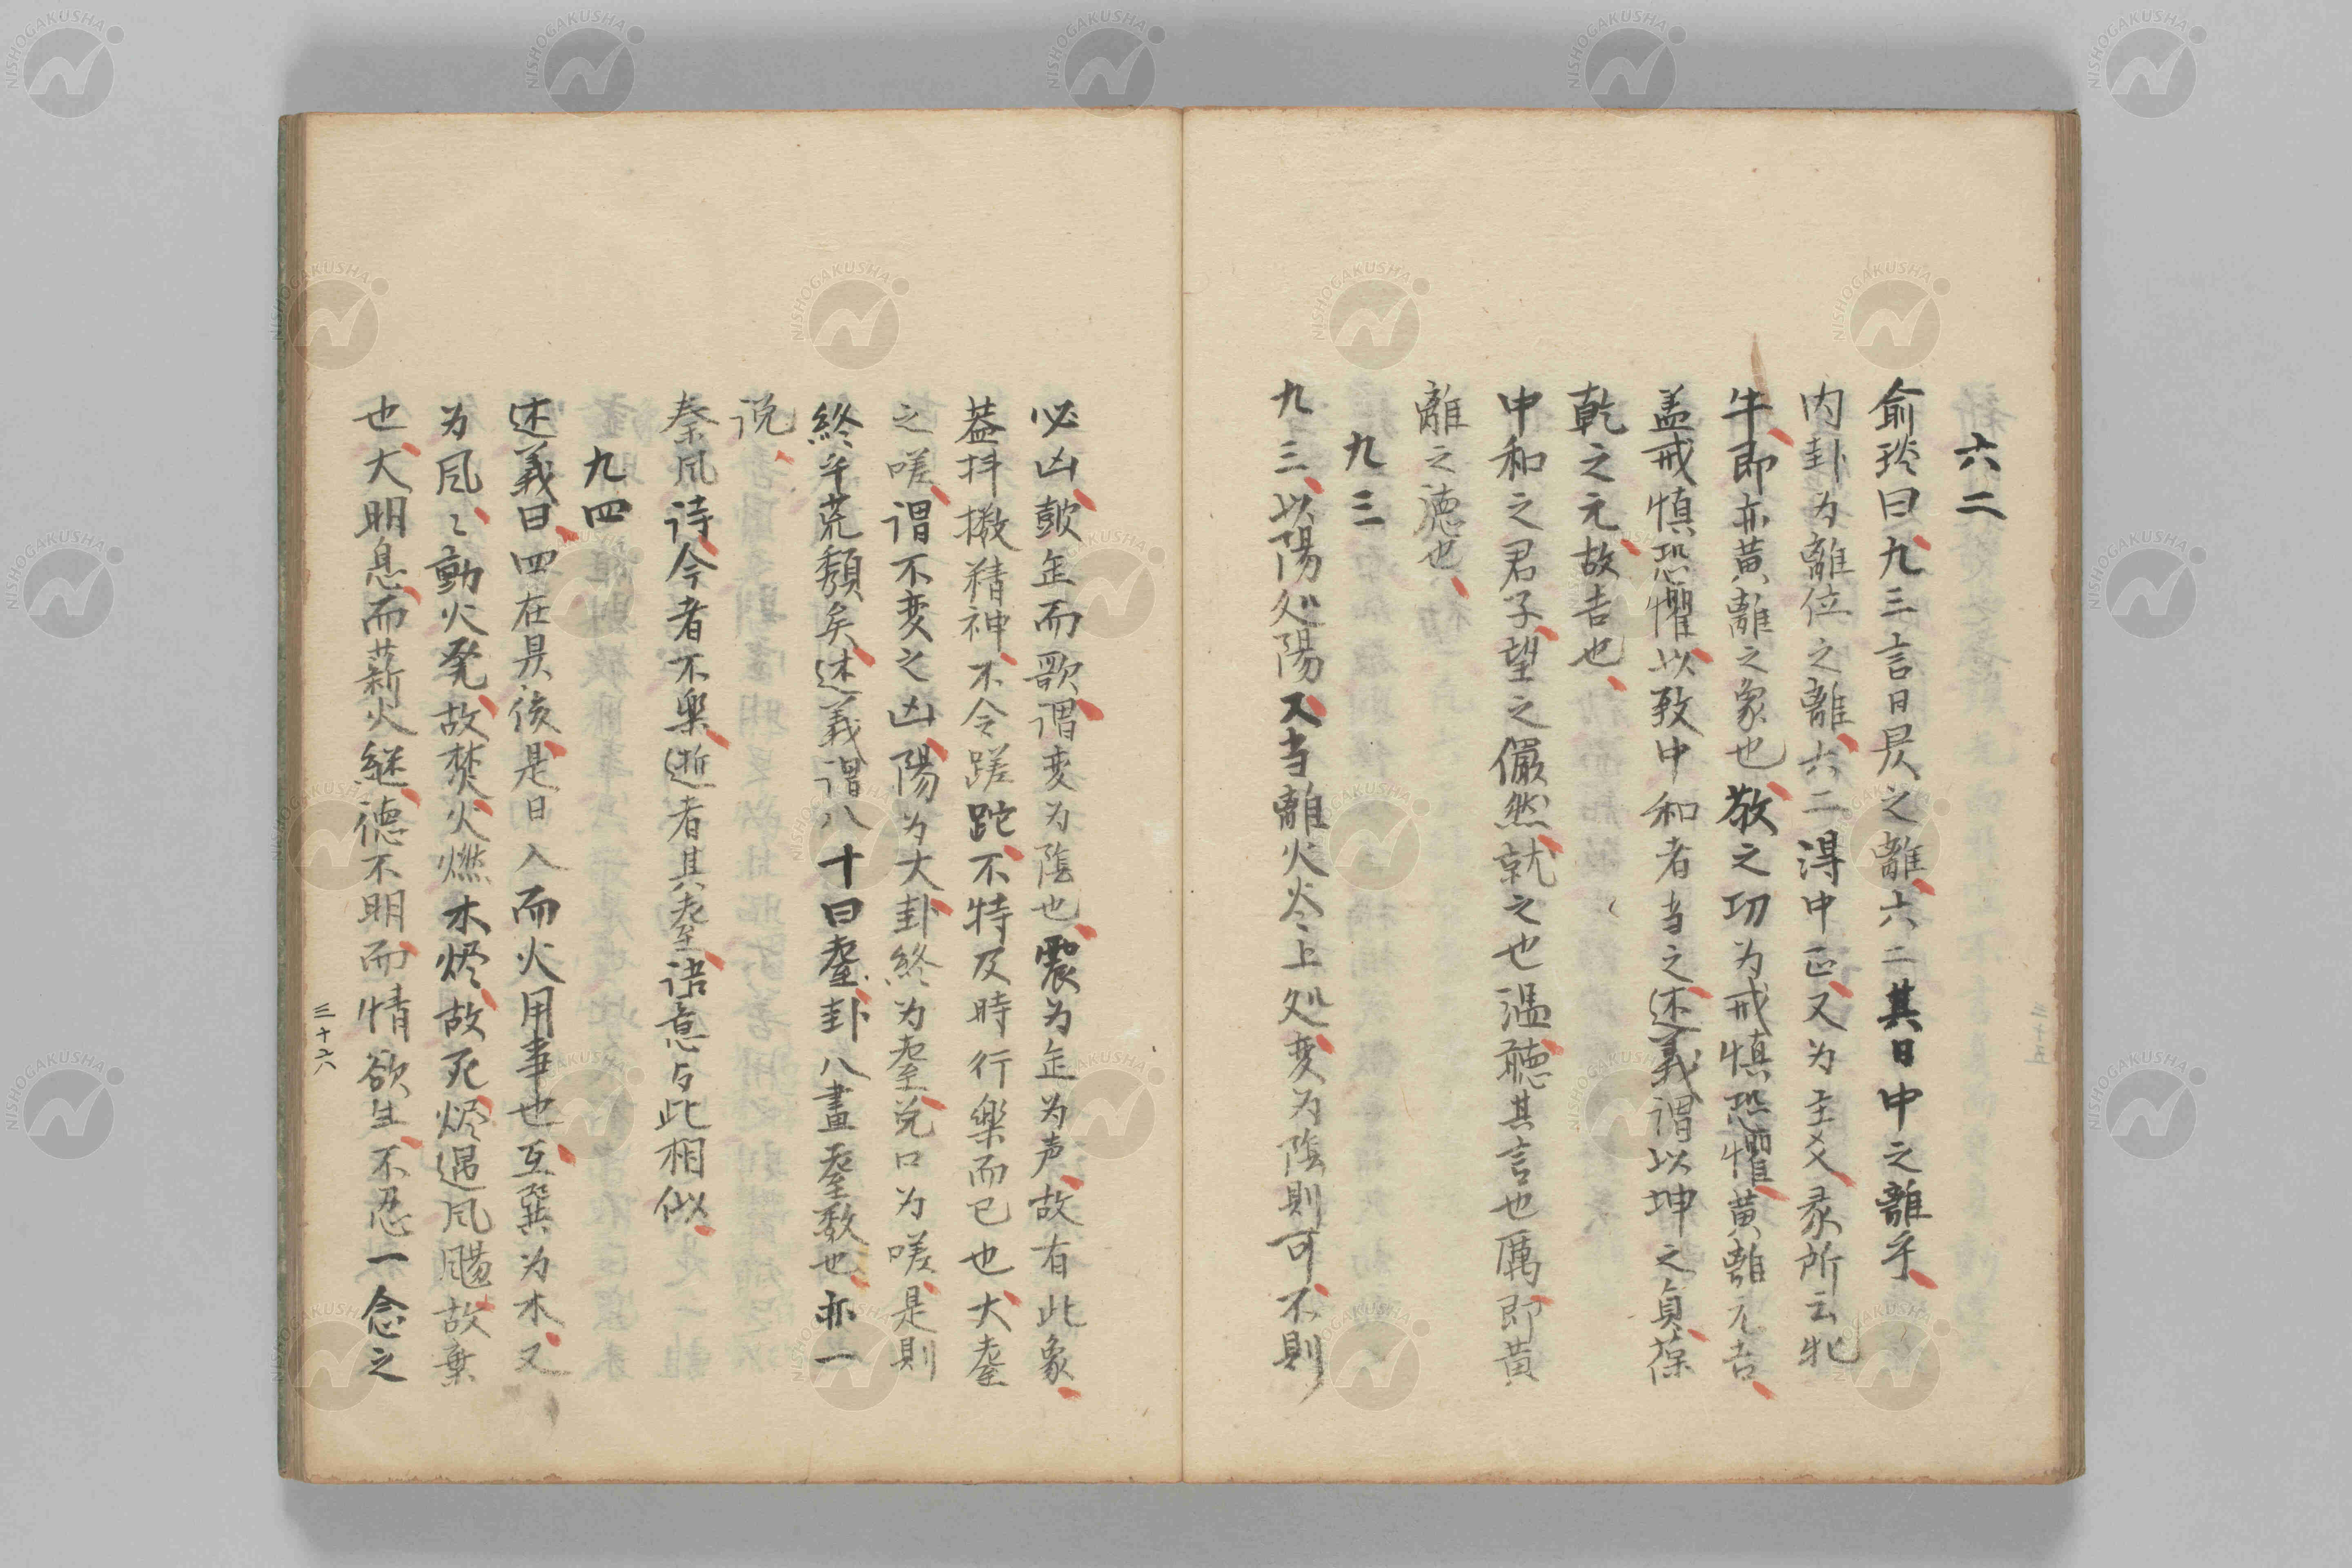 六二
俞琰曰九三言日昃之離六二其日中之離乎
内卦为離位之離六二得中正又为主爻彖所云牝
牛即亦黄離之象也敬之功为戒慎恐懼黄離元吉
盖戒慎恐懼以致中和者当之述義謂以坤之貞葆
乾之元故吉也
中和之君子望之儼然就之也温聴其言也厲即黄
離之徳也
九三
九三以陽処陽又当離火炎上処变为陰則可不則
必凶鼓缶而歌謂变为陰也震为缶为声故有此象
葢抖擻精神不令蹉跎不特及時行楽而已也大耋
之嗟謂不变之凶陽为大卦終为耋兑口为嗟是則
終乎荒頽矣述義謂八十曰耋卦八畫耋数也亦一
说
秦风诗今者不楽逝者其耋语意与此相似
九四
述義曰四在昃後是日入而火用事也互巽为木又
为风〻動火発故焚火燃木烬故死烬遇风颺故棄
也大明息而薪火継德不明而情欲生不忍一念之
三十六
NISHOGAKUSHA